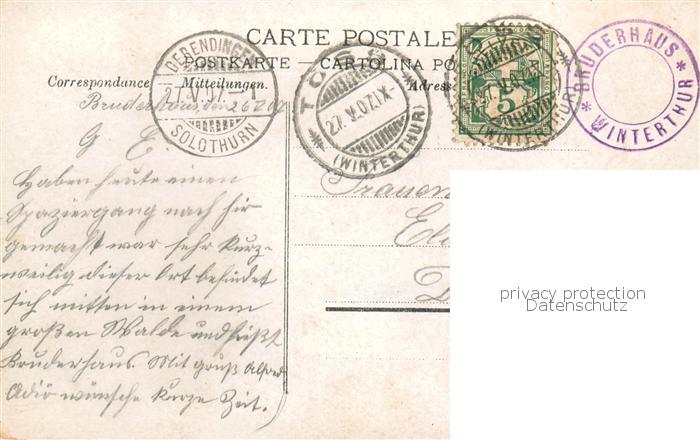 CARTE POSTALE
POSTKARTE — CARTOLINA PO
Correspondance — Mitteilungen.
Adress
DERENDINGEN
27.V.07.
SOLOTHURN
TÖSS
27.V.07.IX-
(WINTERTHUR)
5
(WINTERTHUR)
* BRUDERHAUS *
WINTERTHUR
Bruderhaus, den 26 V 07
G. E.
Haben heute einen
Spaziergang nach hir
gemacht war sehr kurz-
weilig dieser Ort befindet
sich mitten in einem
großen Walde und heißt
Bruderhaus. Mit gruß Alfred
Adiö wünsche kurze Zeit.
privacy protection
Datenschutz